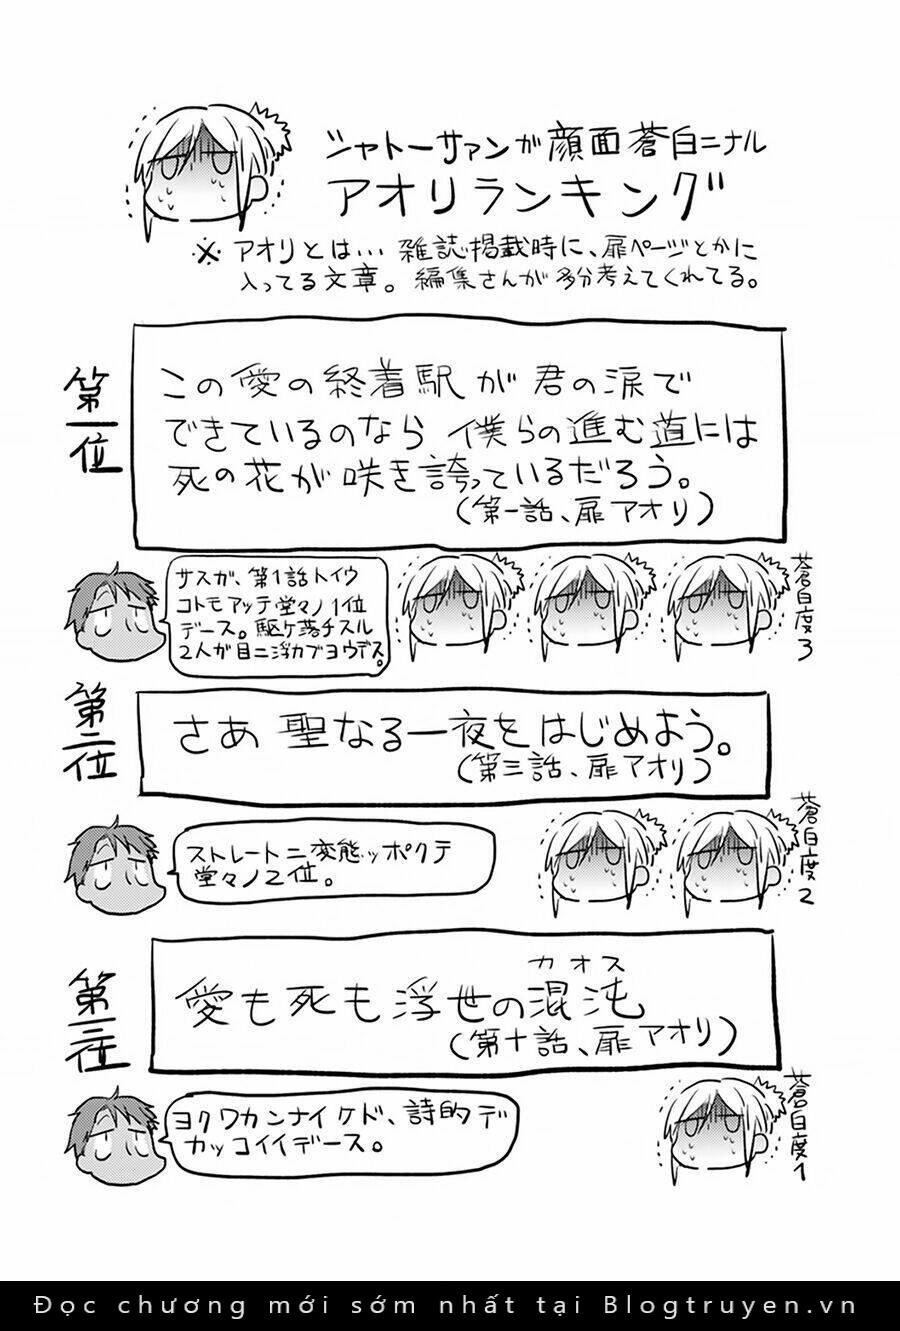 シャトーサァンが顔面蒼白ニナル
アオリランキング
※アオリとは…雑誌掲載時に、扉ページとかに
入ってる文章。編集さんが多分考えてくれてる。
第一位
この愛の終着駅が君の涙で
できているのなら僕らの進む道には
死の花が咲き誇っているだろう。
(第一話、扉アオリ)
サスが、第1話トイウ
コトモアッテ堂々ノ1位
デース。駆ケ落チスル
2人が目ニ浮カブヨウデス。
蒼白度3
第二位
さあ聖なる一夜をはじめよう。
(第三話、扉アオリ)
ストレートニ変態ッポクテ
堂々ノ2位。
蒼白度2
第三位
カオス
愛も死も浮世の混沌
(第十話、扉アオリ)
ヨクワカンナイケド、詩的デ
カッコイイデース。
蒼白度1
Đọc chương mới sớm nhất tại Blogtruyen.vn